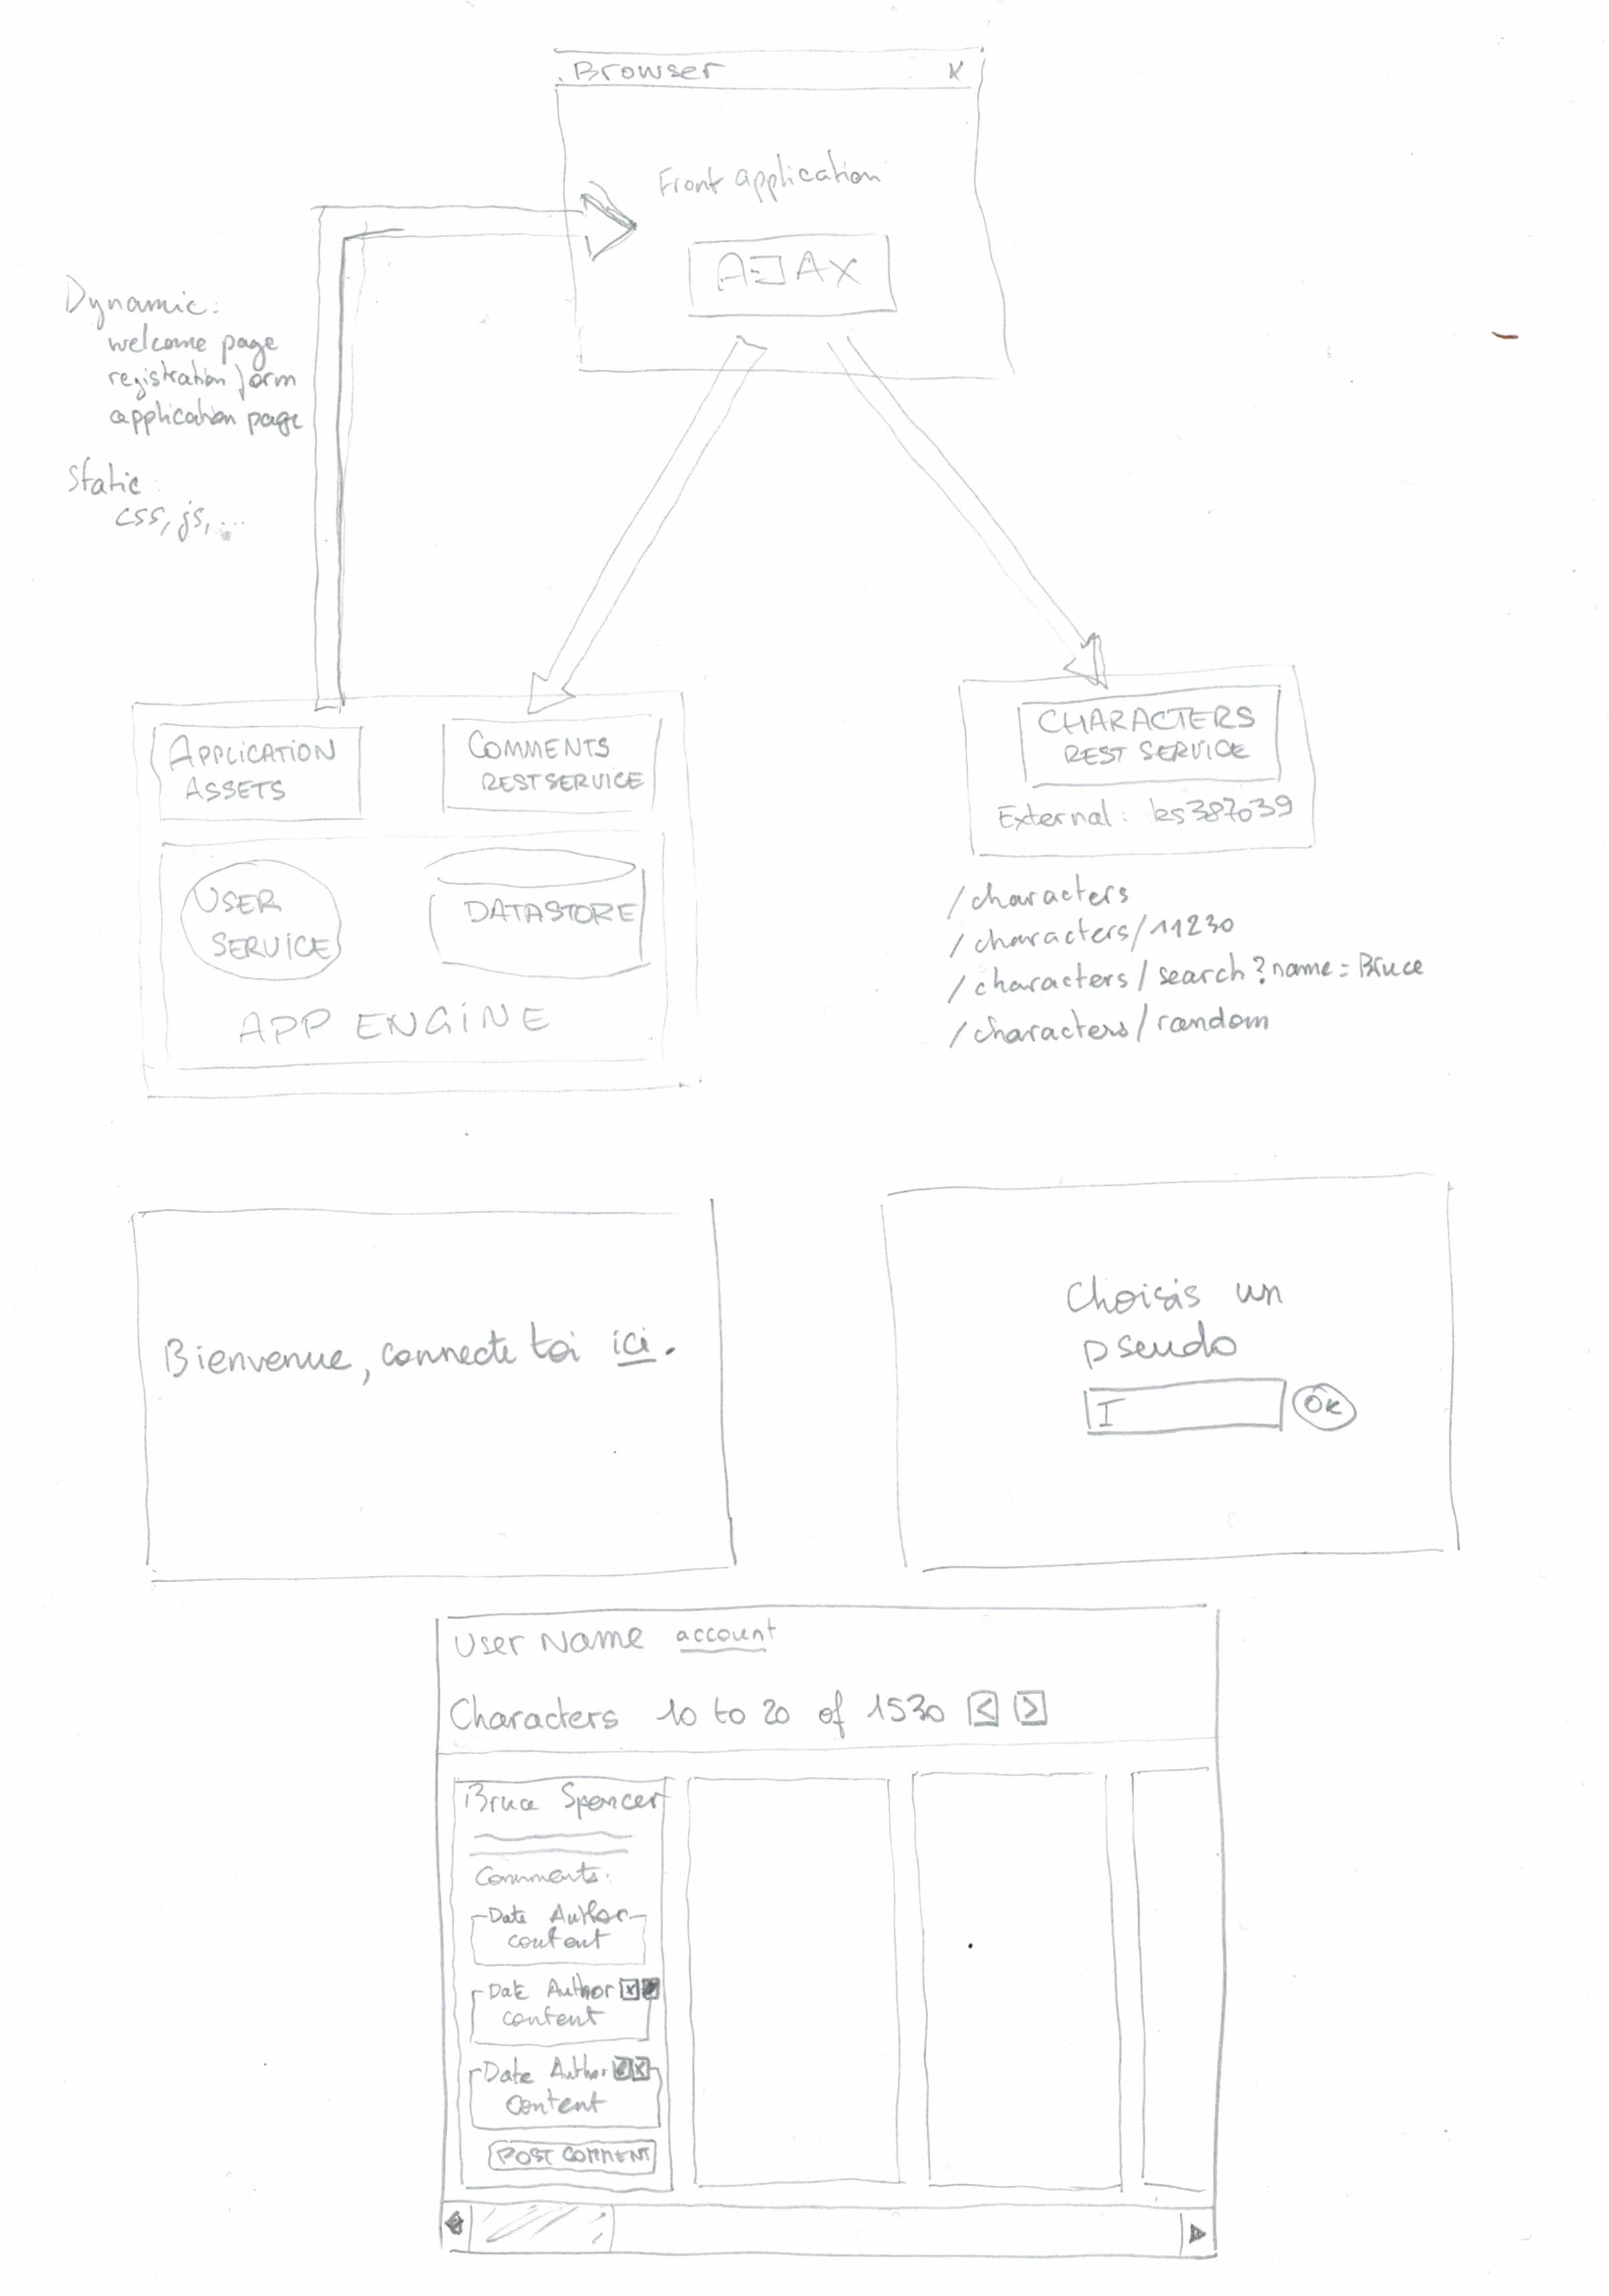 Browser X
Front application
AJAX
Dynamic:
welcome page
registration form
application page
Static:
css, js, ...
APPLICATION
ASSETS
COMMENTS
REST SERVICE
USER
SERVICE
DATASTORE
APP ENGINE
CHARACTERS
REST SERVICE
External: ks387039
/characters
/characters/11230
/characters/search?name=Bruce
/characters/random
Bienvenue, connecte toi ici.
Choisis un
pseudo
I OK
User Name account
Characters 10 to 20 of 1530 < >
Bruce Spencer
Comments:
Date Author
content
Date Author x
content
Date Author x
content
POST COMMENT